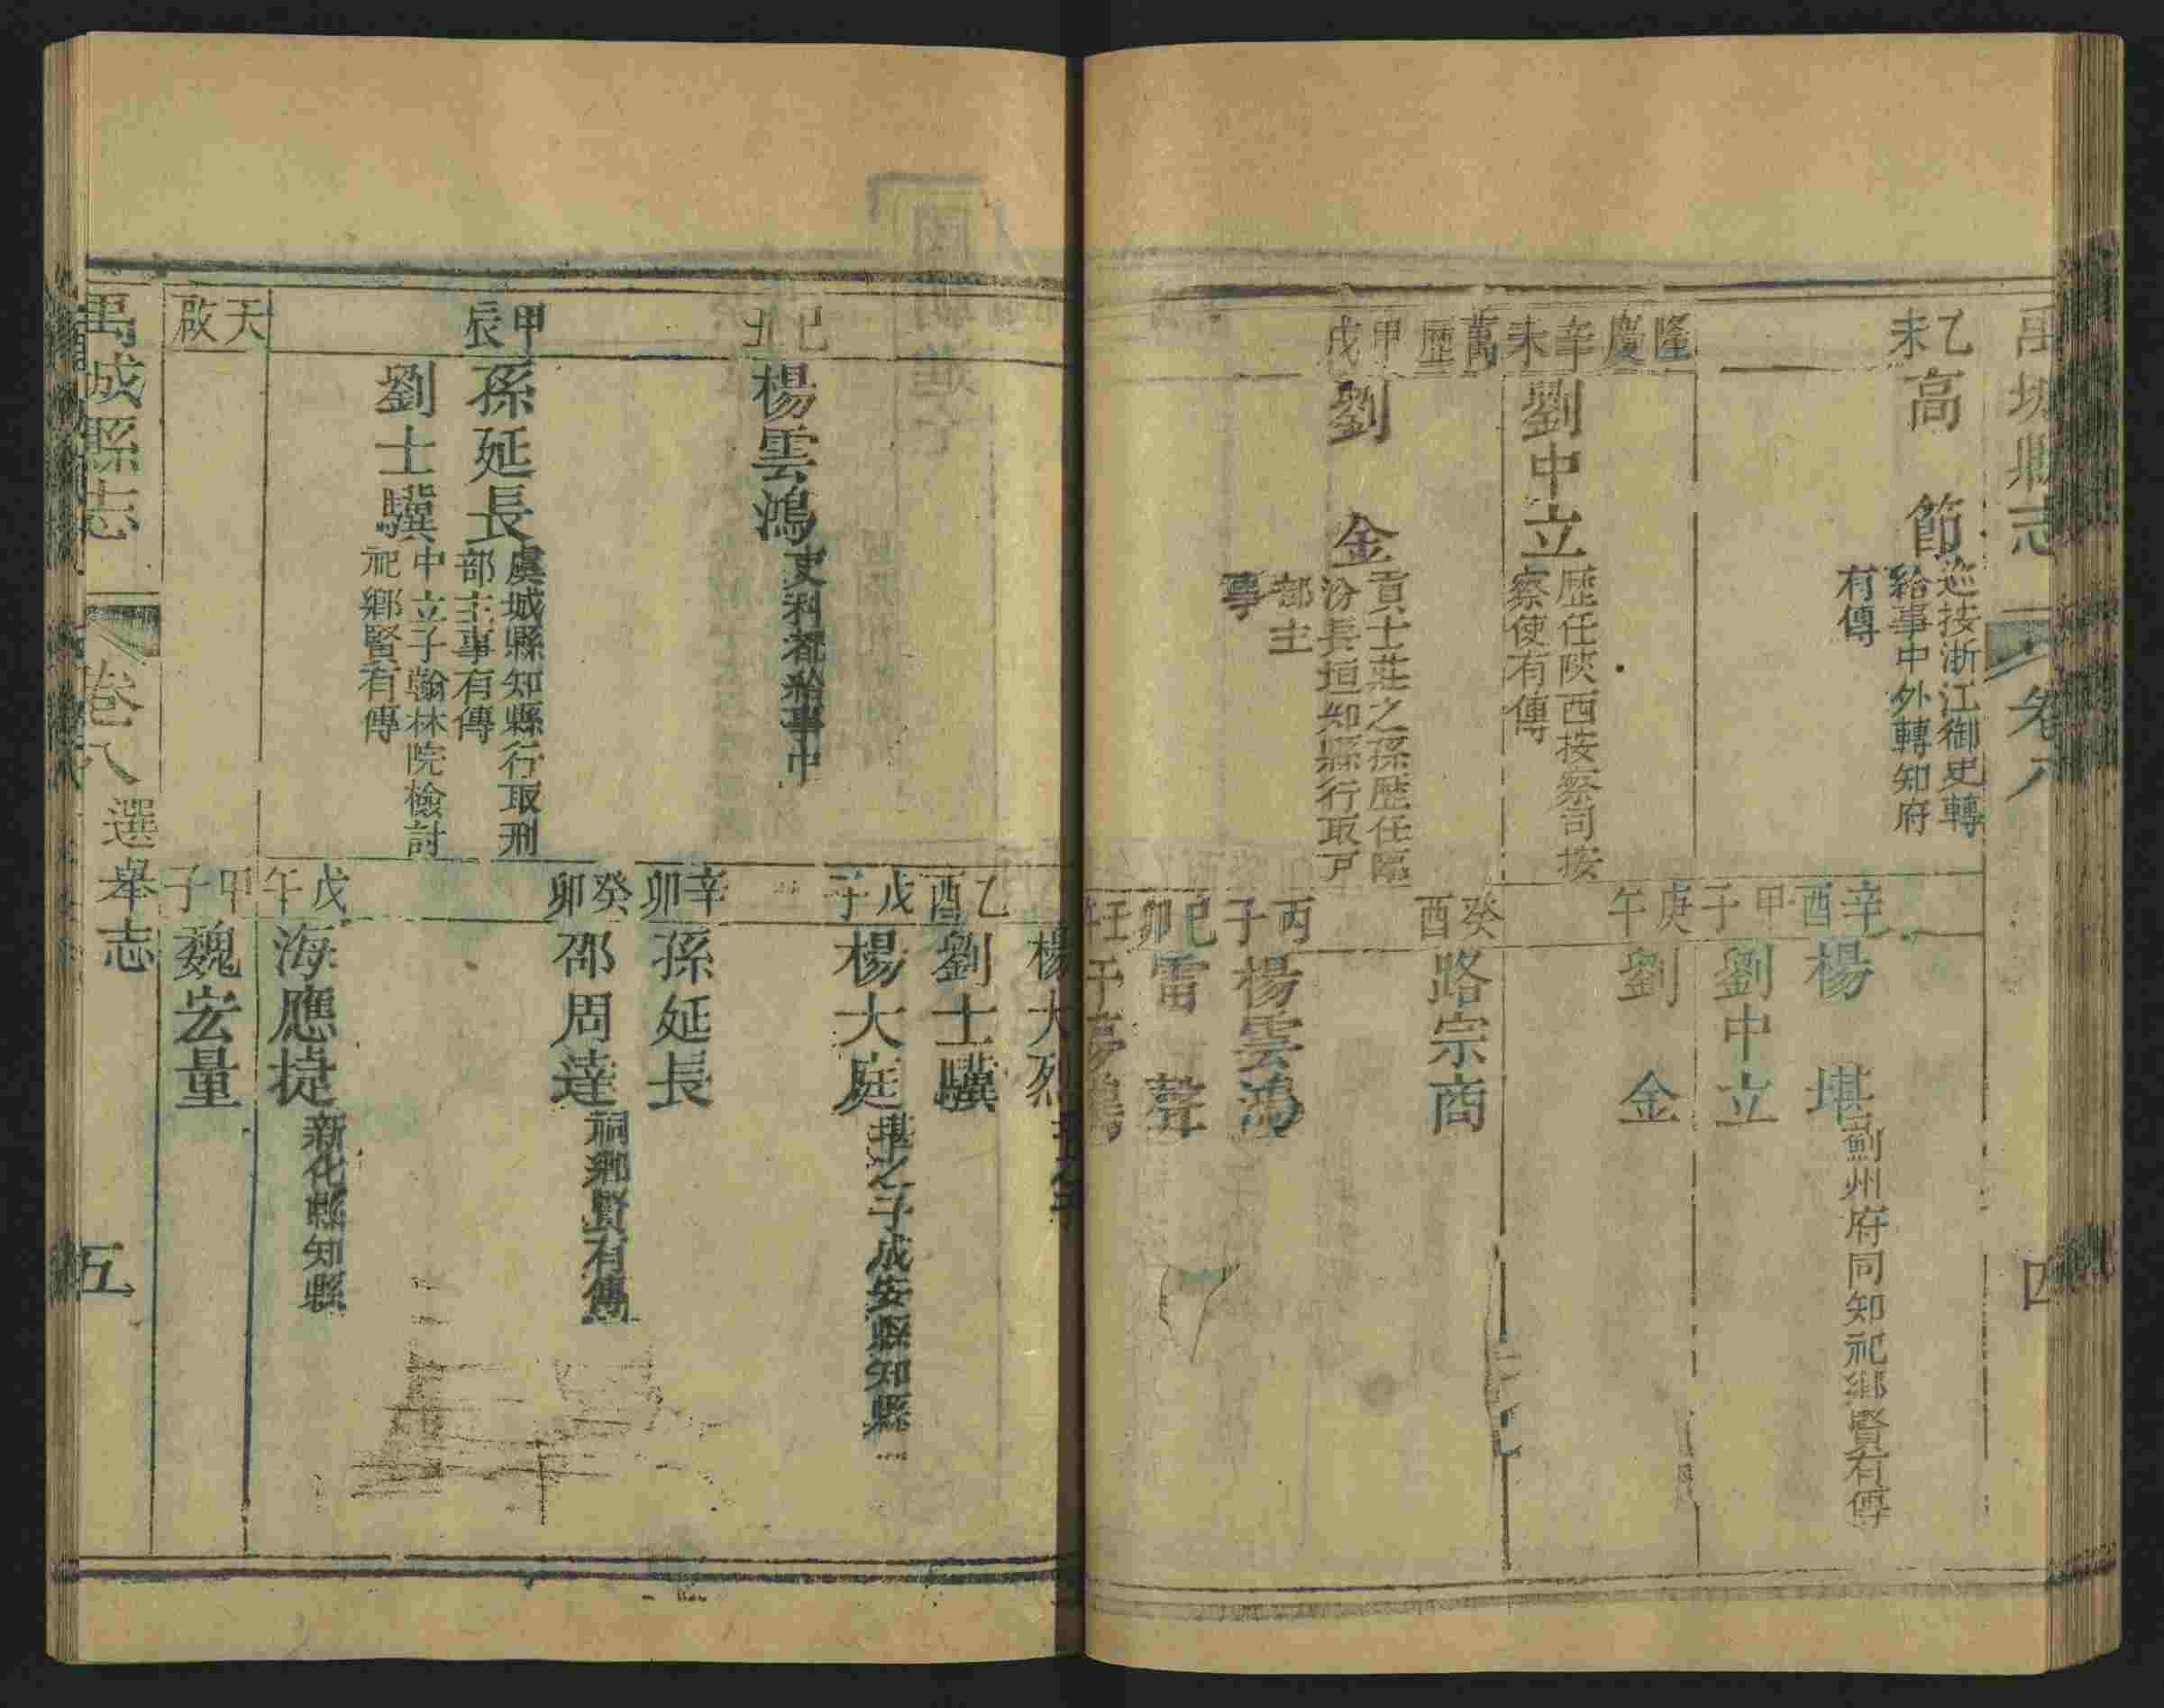 禹城縣志
卷八
四
乙未
高 節
巡按浙江御史轉
給事中外轉知府
有傳
隆慶
辛未
劉中立
歷任陝西按察司按
察使有傳
萬歷
甲戌
劉 金
貢士莊之孫歷任臨
汾長垣知縣行取戸
部主
事
辛酉
楊 堪
薊州府同知祀鄉賢有傳
甲子
劉中立
庚午
劉 金
癸酉
路宗商
丙子
楊雲鴻
己卯
雷 聲
壬午
己丑
楊雲鴻
吏科都給事中
甲辰
孫延長
虞城縣知縣行取刑
部主事有傳
劉士驥
中立子翰林院檢討
祀鄉賢有傳
天啟
楊大烈
堪之子
乙酉
劉士驥
戊子
楊大庭
堪之子成安縣知縣
辛卯
孫延長
癸卯
邵周達
祠鄉賢有傳
戊午
海應㨗
新化縣知縣
甲子
魏宏量
禹城縣志
卷八
選舉志
五